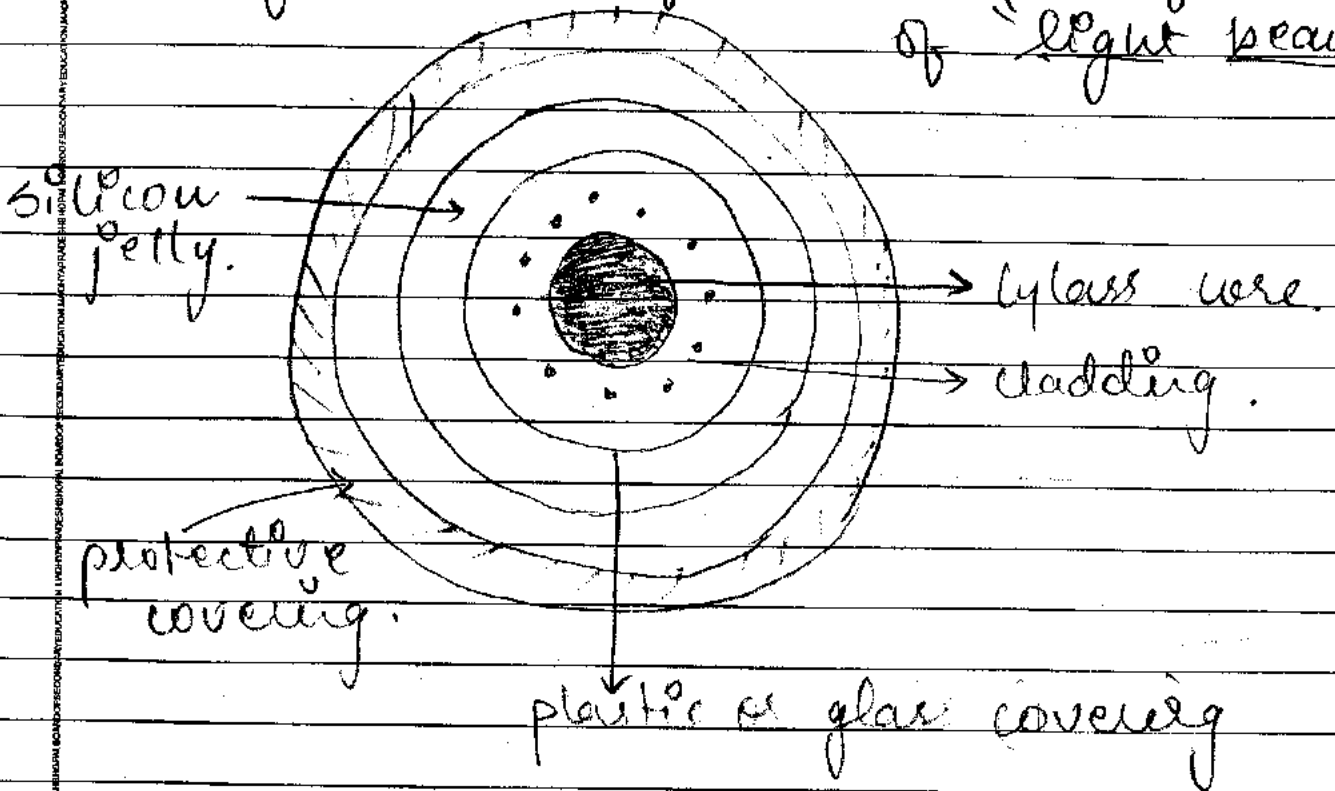 of "light beau
silicon
jelly.
Glass core.
cladding.
protective
covering.
plastic or glass covering